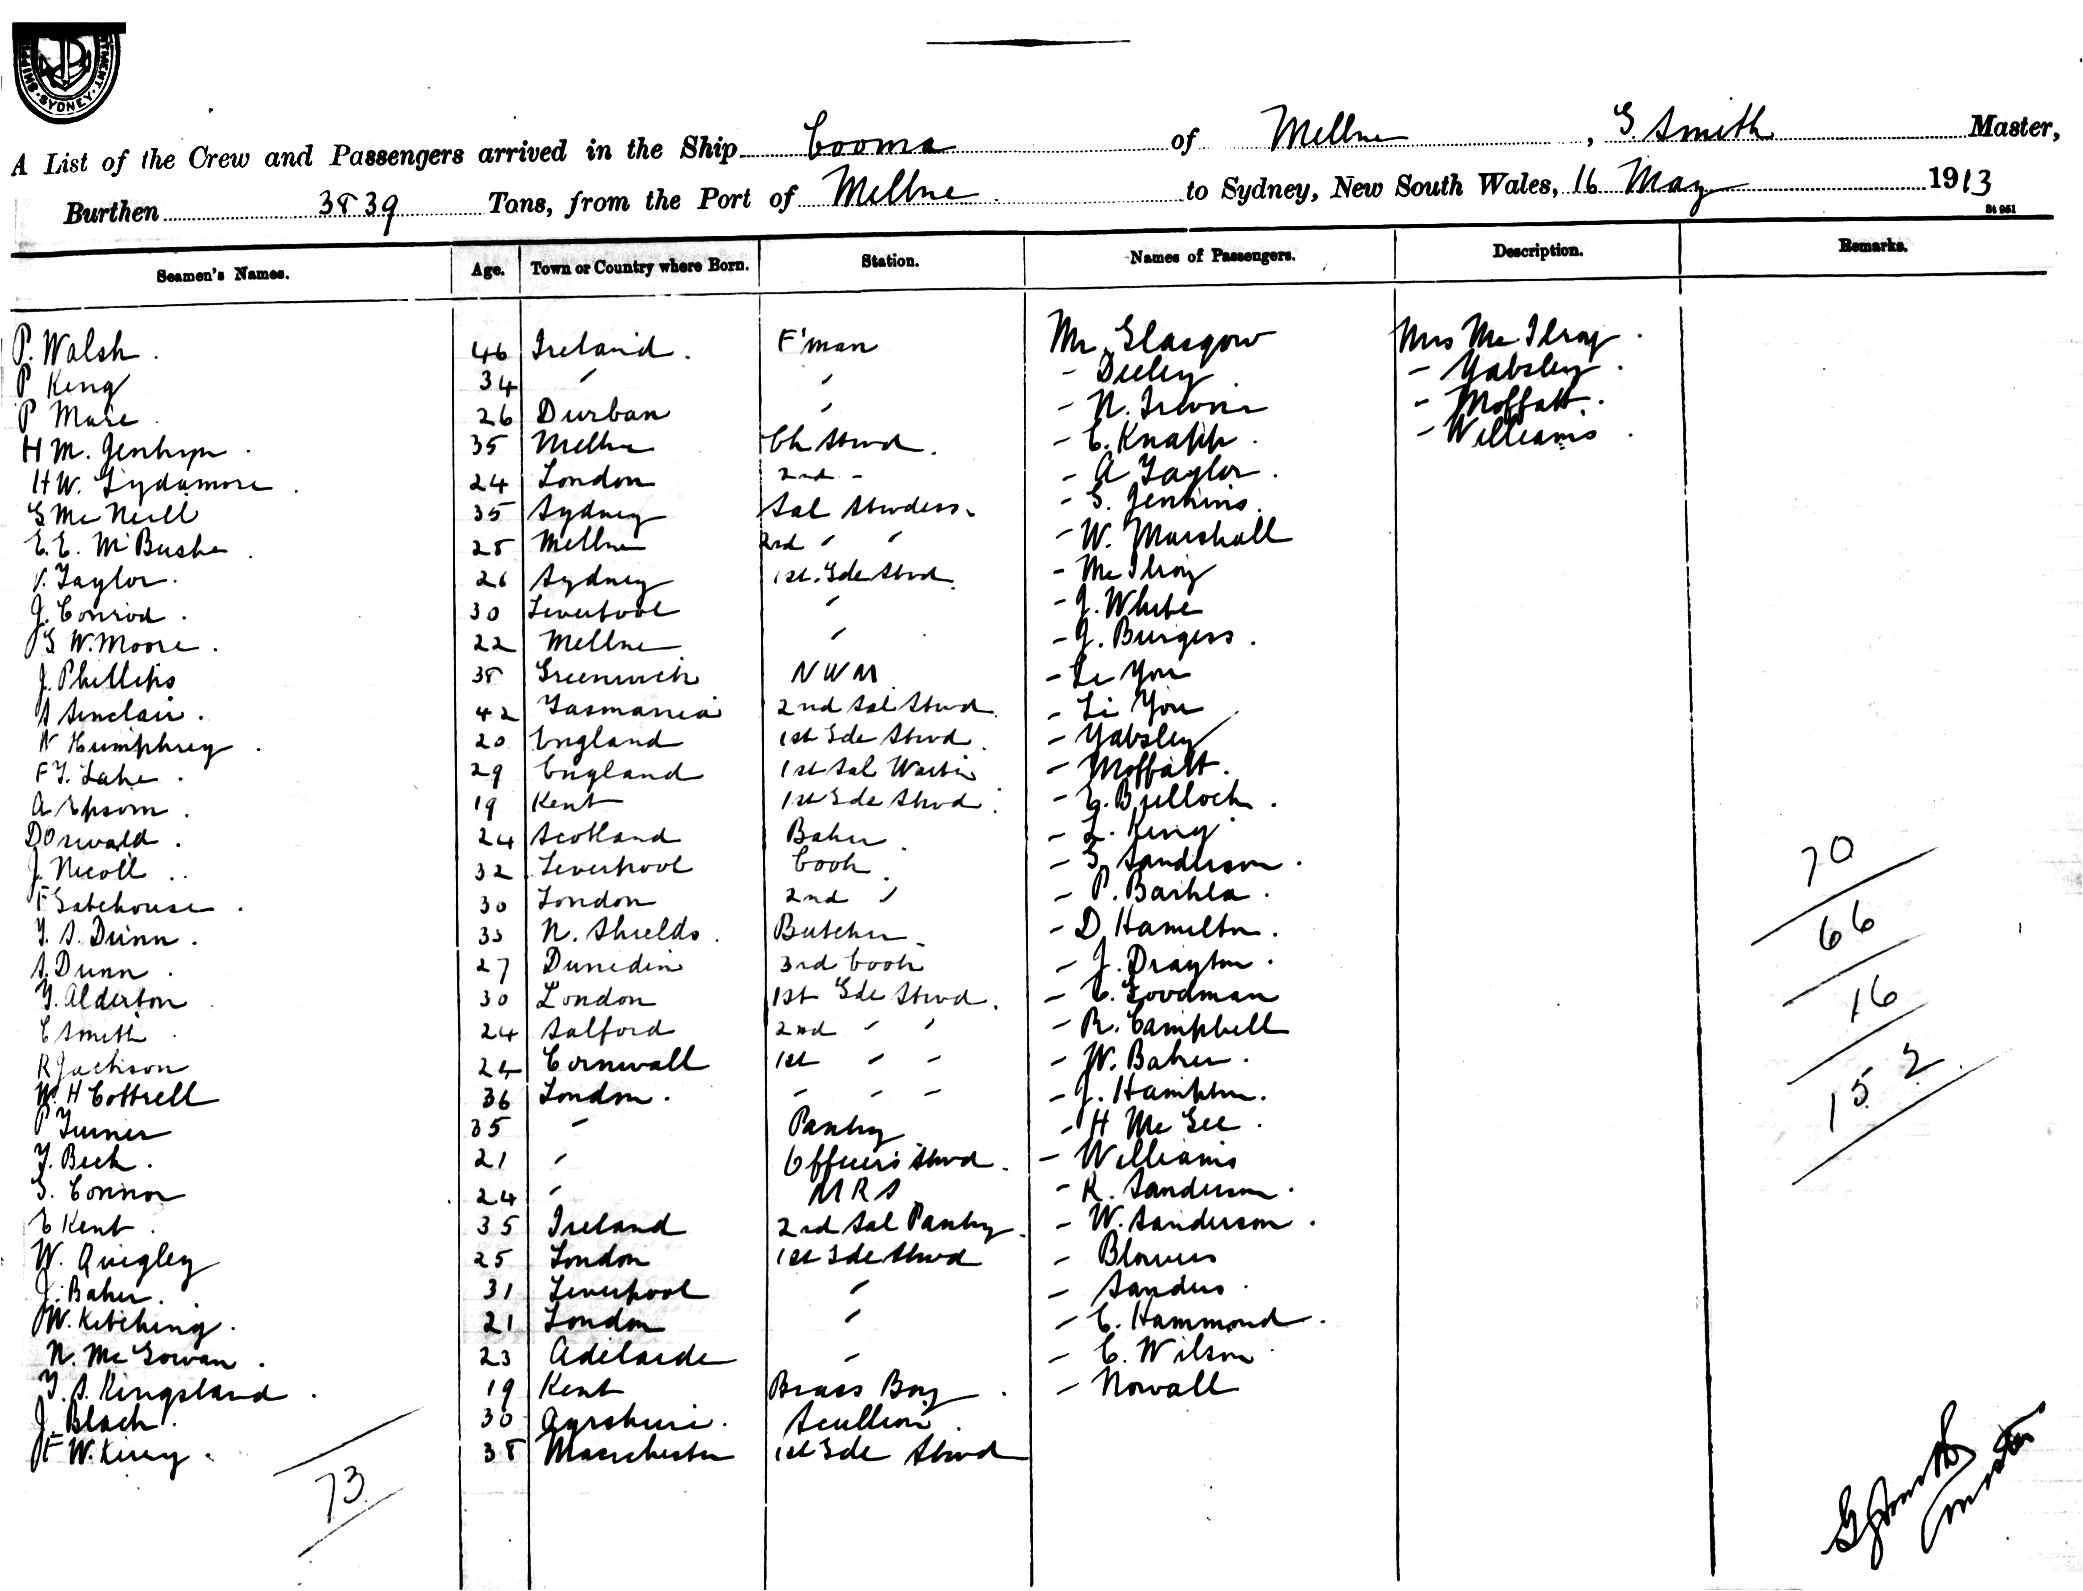 SHIPPING DEPARTMENT. SYDNEY.
A List of the Crew and Passengers arrived in the Ship Cooma of Mellne, G. Smith Master,
Burthen 3839 Tons, from the Port of Mellne to Sydney, New South Wales, 16 May 1913
St 961
Seamen's Names. Age. Town or Country where Born. Station. Names of Passengers. Description. Remarks.
P. Walsh. 46 Ireland. F'man Mr Glasgow Mrs McIlroy.
P King 34 " " - Deeley. - Yabsley.
P Mare 26 Durban " - N. Irwin - Moffatt.
H M. 35 Mellne Ch Stwd. - C. Knapp. - Williams.
H W. Sydamore. 24 London 2nd - - A Taylor.
G McNeill 35 Sydney Sal Stwdess. - G. Jenkins.
E. E. McBushe. 28 Mellne 2nd " " - W. Marshall
V. Taylor. 26 Sydney 1st Gde Stwd. - McIlroy
J. Conrod. 30 Liverpool " - J. White
G W. Moore. 22 Mellne " - J. Burgess.
J. Phillips 38 Greenwich NWM - Le You
A Sinclair. 42 Tasmania 2nd Sal Stwd. - Li You
W Humphrey. 20 England 1st Gde Stwd. - Yabsley
F T. Lake. 29 England 1st Sal Waiter - Moffatt.
A Epsom. 19 Kent 1st Gde Stwd. - E. Bulloch.
D Oswald. 24 Scotland Baker. - L. King
J. Nicoll.. 32 Liverpool Cook. - G. Sanderson.
F Gatehouse. 30 London 2nd " - P. Barkla.
70
T. S. Dunn. 35 N. Shields. Butcher. - D. Hamilton.
66
S. Dunn. 27 Dunedin 3rd Cook - J. Drayton.
T. Alderton 30 London 1st Gde Stwd. - C. Goodman
16
C Smith 24 Salford 2nd " " - R. Campbell
R Jackson 24 Cornwall 1st " - - W. Baker.
152
W. H Cottrell 36 London. - - - - J. Hampton.
P Turner 35 " Pantry - H McGee.
T. Beck. 21 " Officers Stwd. - Williams
G. Connor 24 " MRS - K. Sanderson.
C Kent. 35 Ireland 2nd Sal Pantry. - W. Sanderson.
W. Quigley 25 London 1st Gde Stwd - Blowers
J. Baker. 31 Liverpool " - Sanders.
W. Kitching. 21 London " - C. Hammond.
N. McGowan. 23 Adelaide " - C. Wilson
T. S. Kingsland. 19 Kent Brass Boy. - Nowall
J. Black. 30 Ayrshire. Scullion.
F W. Kirey. 38 Manchester 1st Gde Stwd
73
G Smith
Master